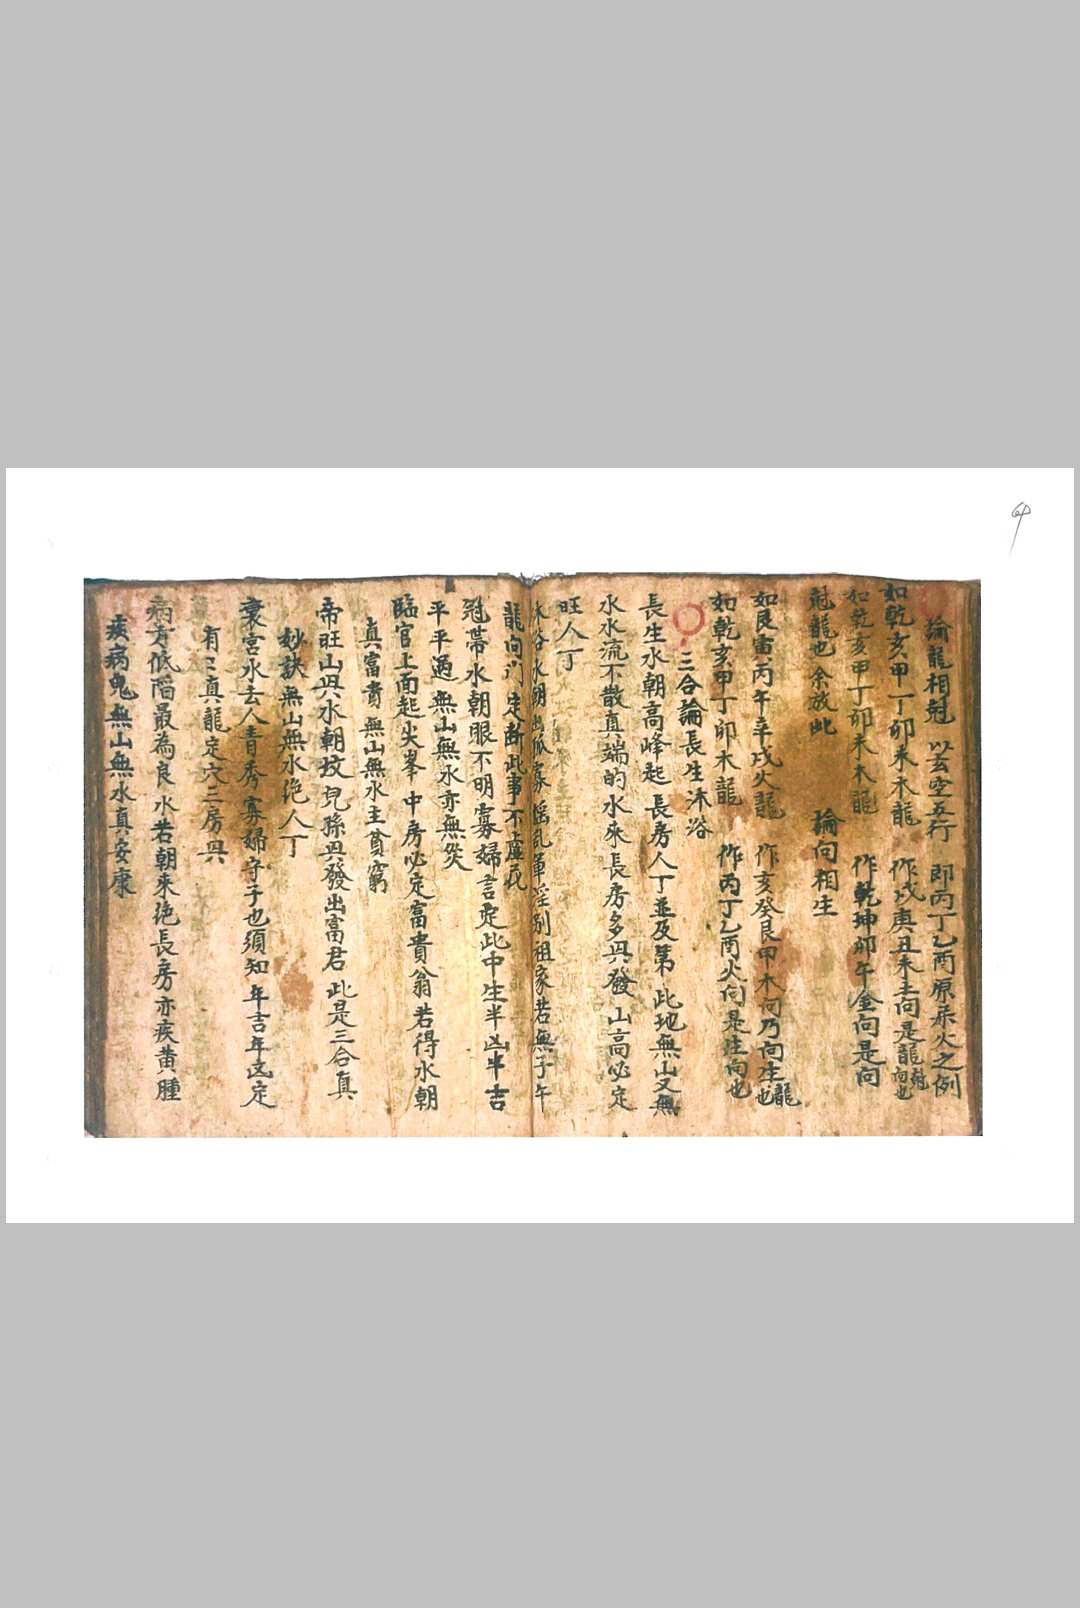 論龍相尅 以玄空五行 即丙丁乙酉原屬火之例
如乾亥甲丁卯未木龍 作戌庚丑未土向是龍尅向也
如乾亥甲丁卯未木龍 作乾坤卯午金向是向
尅龍也 余放此 掄向相生
如艮雷丙午辛戌火龍 作亥癸艮甲木向乃向生龍也
如乾亥甲丁卯木龍 作丙丁乙酉火向是生向也
三合論長生沐浴
長生水朝高峰起 長房人丁並及第 此地無山又無
水 水流不散真端的 水來長房多兴發 山高必定
旺人丁
沐浴水朝出 寡 乱 淫别祖家 若無子午
龍向门 定斷此事不虛花
冠帶水朝眼不明 寡婦言定此中生 半凶半吉
平平過 無山無水亦無災
臨官上面起尖峯 中房必定富貴翁 若得水朝
真富貴 無山無水主貧窮
帝旺山兴水朝坟 兒孫兴發出富君 此是三合真
妙訣 無山無水绝人丁
衰宮水去人青秀 寡婦守子也須知 年吉年凶定
有 真龍定穴三房兴
病方低陷最為良 水若朝來绝長房 亦疾黃腫
疾病鬼 無山無水真安康